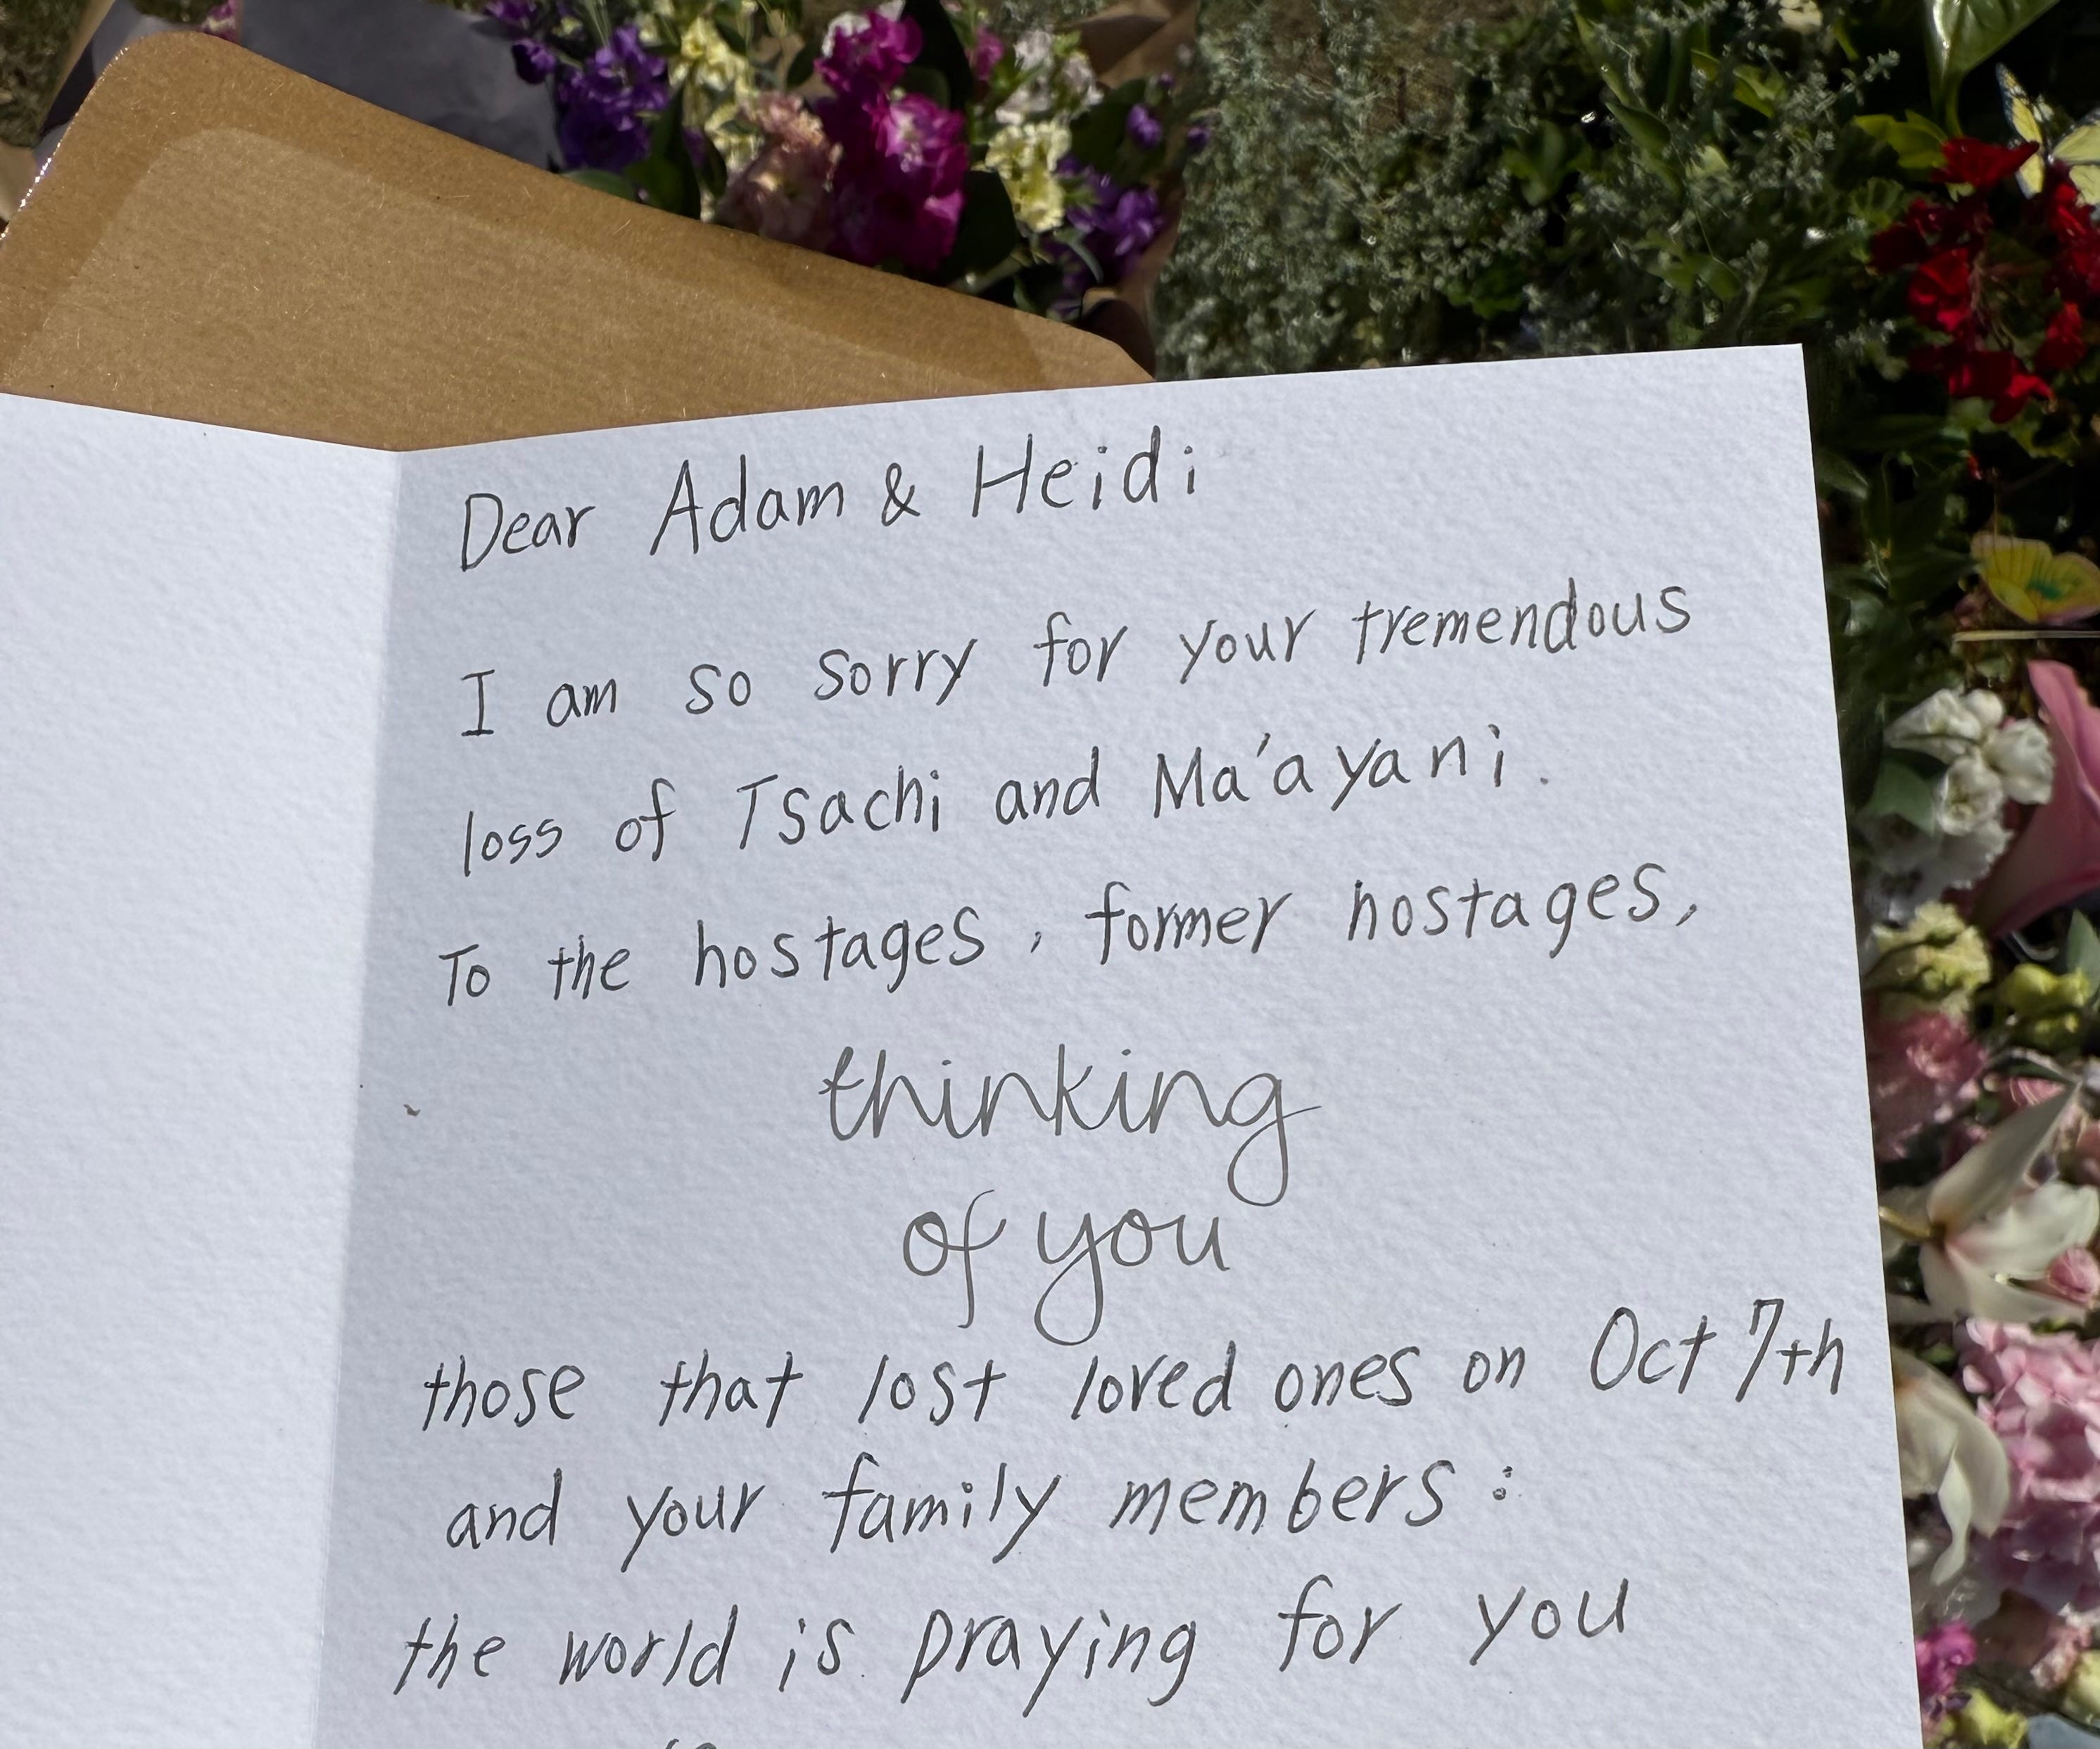 Dear Adam & Heidi
I am so sorry for your tremendous
loss of Tsachi and Ma'ayani.
To the hostages, former hostages,
thinking
of you
those that lost loved ones on Oct 7th
and your family members:
the world is praying for you